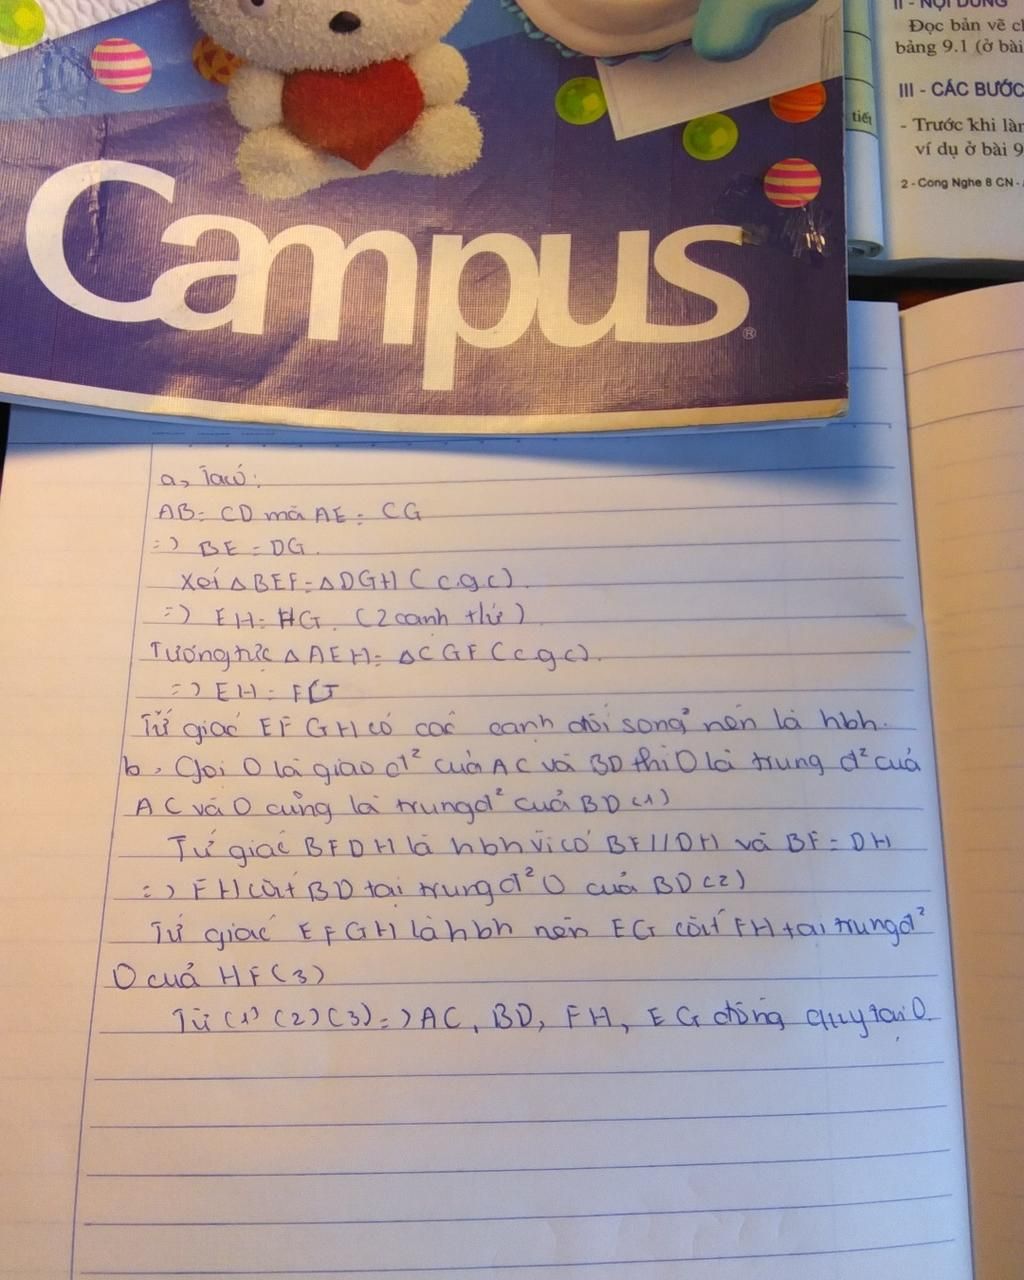 II - NỘI DUNG
Đọc bản vẽ
bảng 9.1 (ở bài
III - CÁC BƯỚC
tiết
- Trước khi
ví dụ ở bài 9
2 - Cong Nghe 8 CN -
Campus
®
a, Ta có:
AB = CD mà AE = CG
=> BE = DG.
Xét △BEF = △DGH (c.g.c).
=> EH = HG. (2 canh t/ứ)
Tương tự △AEH = △CGF (c.g.c).
=> EH = FG
Tứ giác EFGH có các canh đối song² nên là hbh.
b, Gọi O là giao đ² của AC và BD thì O là trung đ² của
AC và O cũng là trung đ² của BD (1)
Tứ giác BFDH là hbh vì có BF // DH và BF = DH
=> FH cắt BD tại trung đ² O của BD (2)
Tứ giác EFGH là hbh nên EG cắt FH tại trung đ²
O của HF (3)
Từ (1) (2) (3) => AC, BD, FH, EG đồng quy tại O.